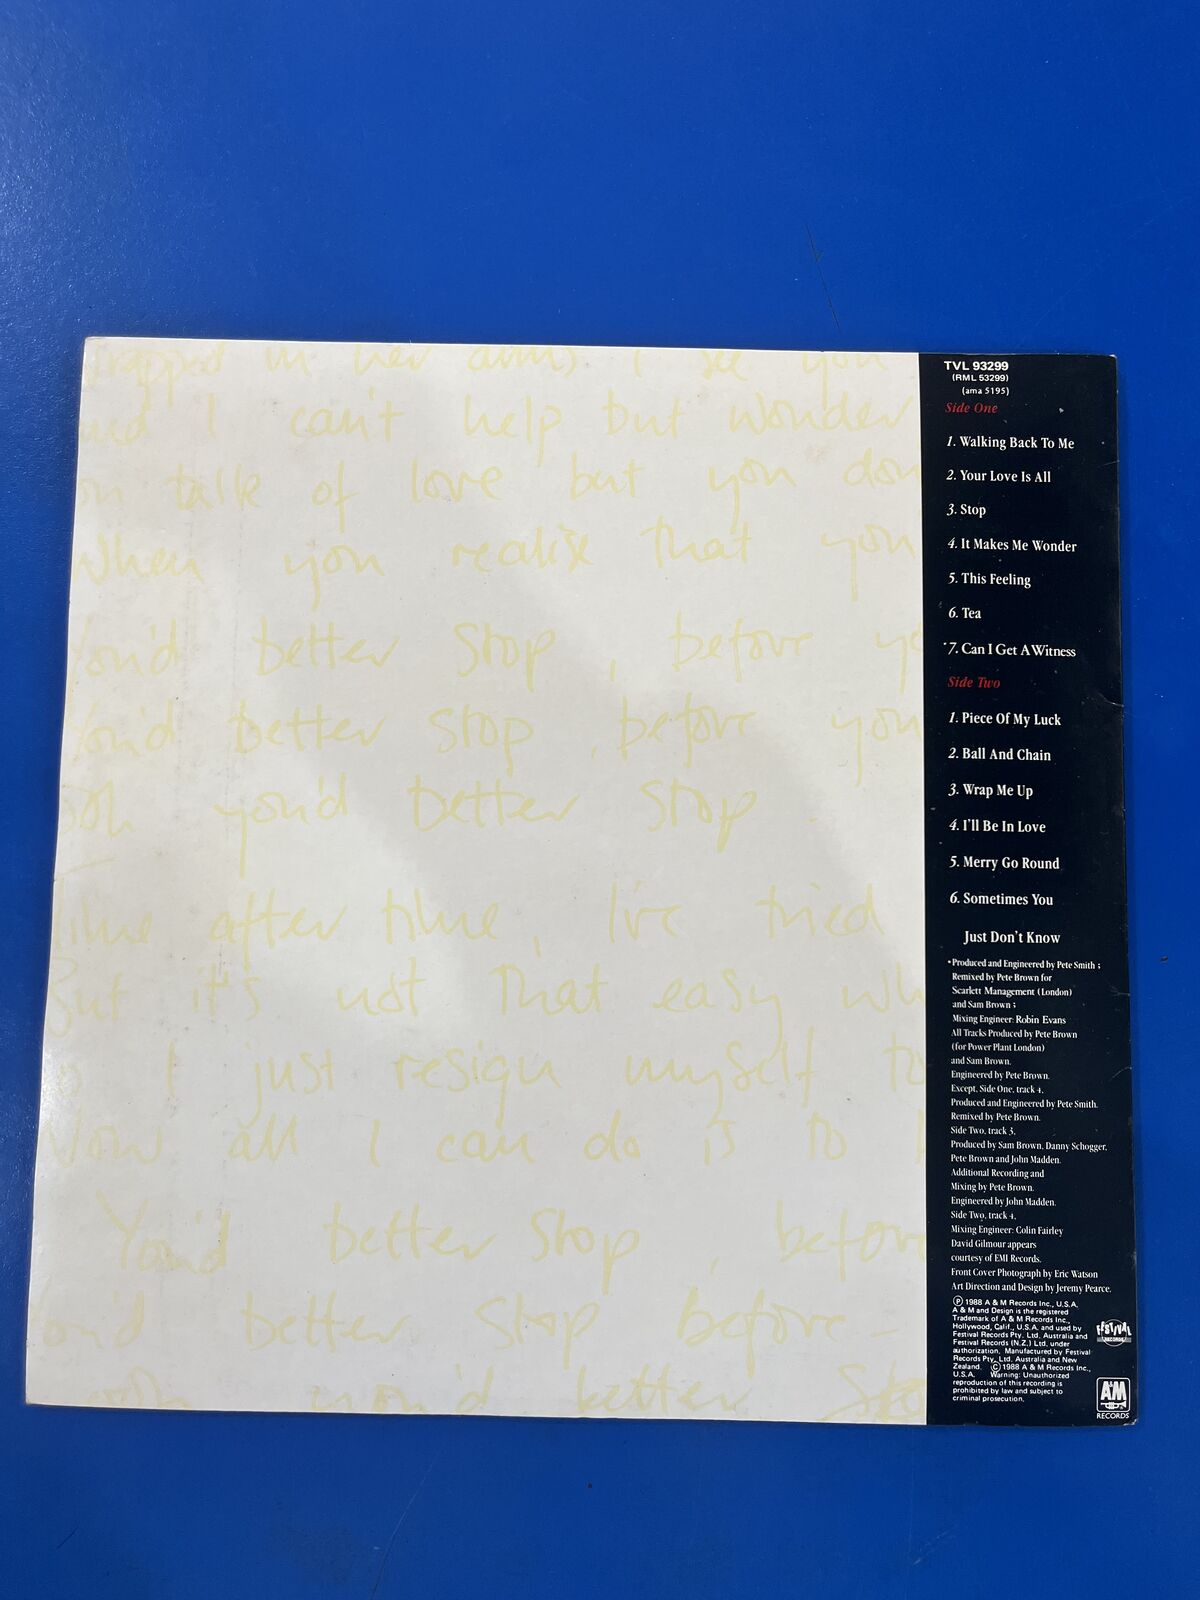 trapped in her arms I see you
and I can't help but wonder
on talk of love but you don
When you realise that you
You'd better Stop, before yo
You'd better stop, before you
ooh you'd better stop.
Time after time, I've tried
But it's not that easy wh
so I just resign myself to
Now all I can do is to
You'd better Stop, before
You'd better Stop before -
ooh you'd better Sto
TVL 93299
(RML 53299)
(ama 5195)
Side One
1. Walking Back To Me
2. Your Love Is All
3. Stop
4. It Makes Me Wonder
5. This Feeling
6. Tea
*7. Can I Get A Witness
Side Two
1. Piece Of My Luck
2. Ball And Chain
3. Wrap Me Up
4. I'll Be In Love
5. Merry Go Round
6. Sometimes You
Just Don't Know
*Produced and Engineered by Pete Smith ;
Remixed by Pete Brown for
Scarlett Management (London)
and Sam Brown ;
Mixing Engineer: Robin Evans
All Tracks Produced by Pete Brown
(for Power Plant London)
and Sam Brown.
Engineered by Pete Brown.
Except, Side One, track 4.
Produced and Engineered by Pete Smith.
Remixed by Pete Brown.
Side Two, track 3,
Produced by Sam Brown, Danny Schogger,
Pete Brown and John Madden.
Additional Recording and
Mixing by Pete Brown.
Engineered by John Madden.
Side Two, track 4,
Mixing Engineer: Colin Fairley
David Gilmour appears
courtesy of EMI Records.
Front Cover Photograph by Eric Watson
Art Direction and Design by Jeremy Pearce.
℗ 1988 A & M Records Inc., U.S.A.
A & M and Design is the registered
Trademark of A & M Records Inc.,
Hollywood, Calif., U.S.A. and used by
Festival Records Pty. Ltd. Australia and
Festival Records (N.Z.) Ltd. under
authorization. Manufactured by Festival
Records Pty. Ltd. Australia and New
Zealand. © 1988 A & M Records Inc.,
U.S.A. Warning: Unauthorized
reproduction of this recording is
prohibited by law and subject to
criminal prosecution.
FESTIVAL
RECORDS
A&M
RECORDS